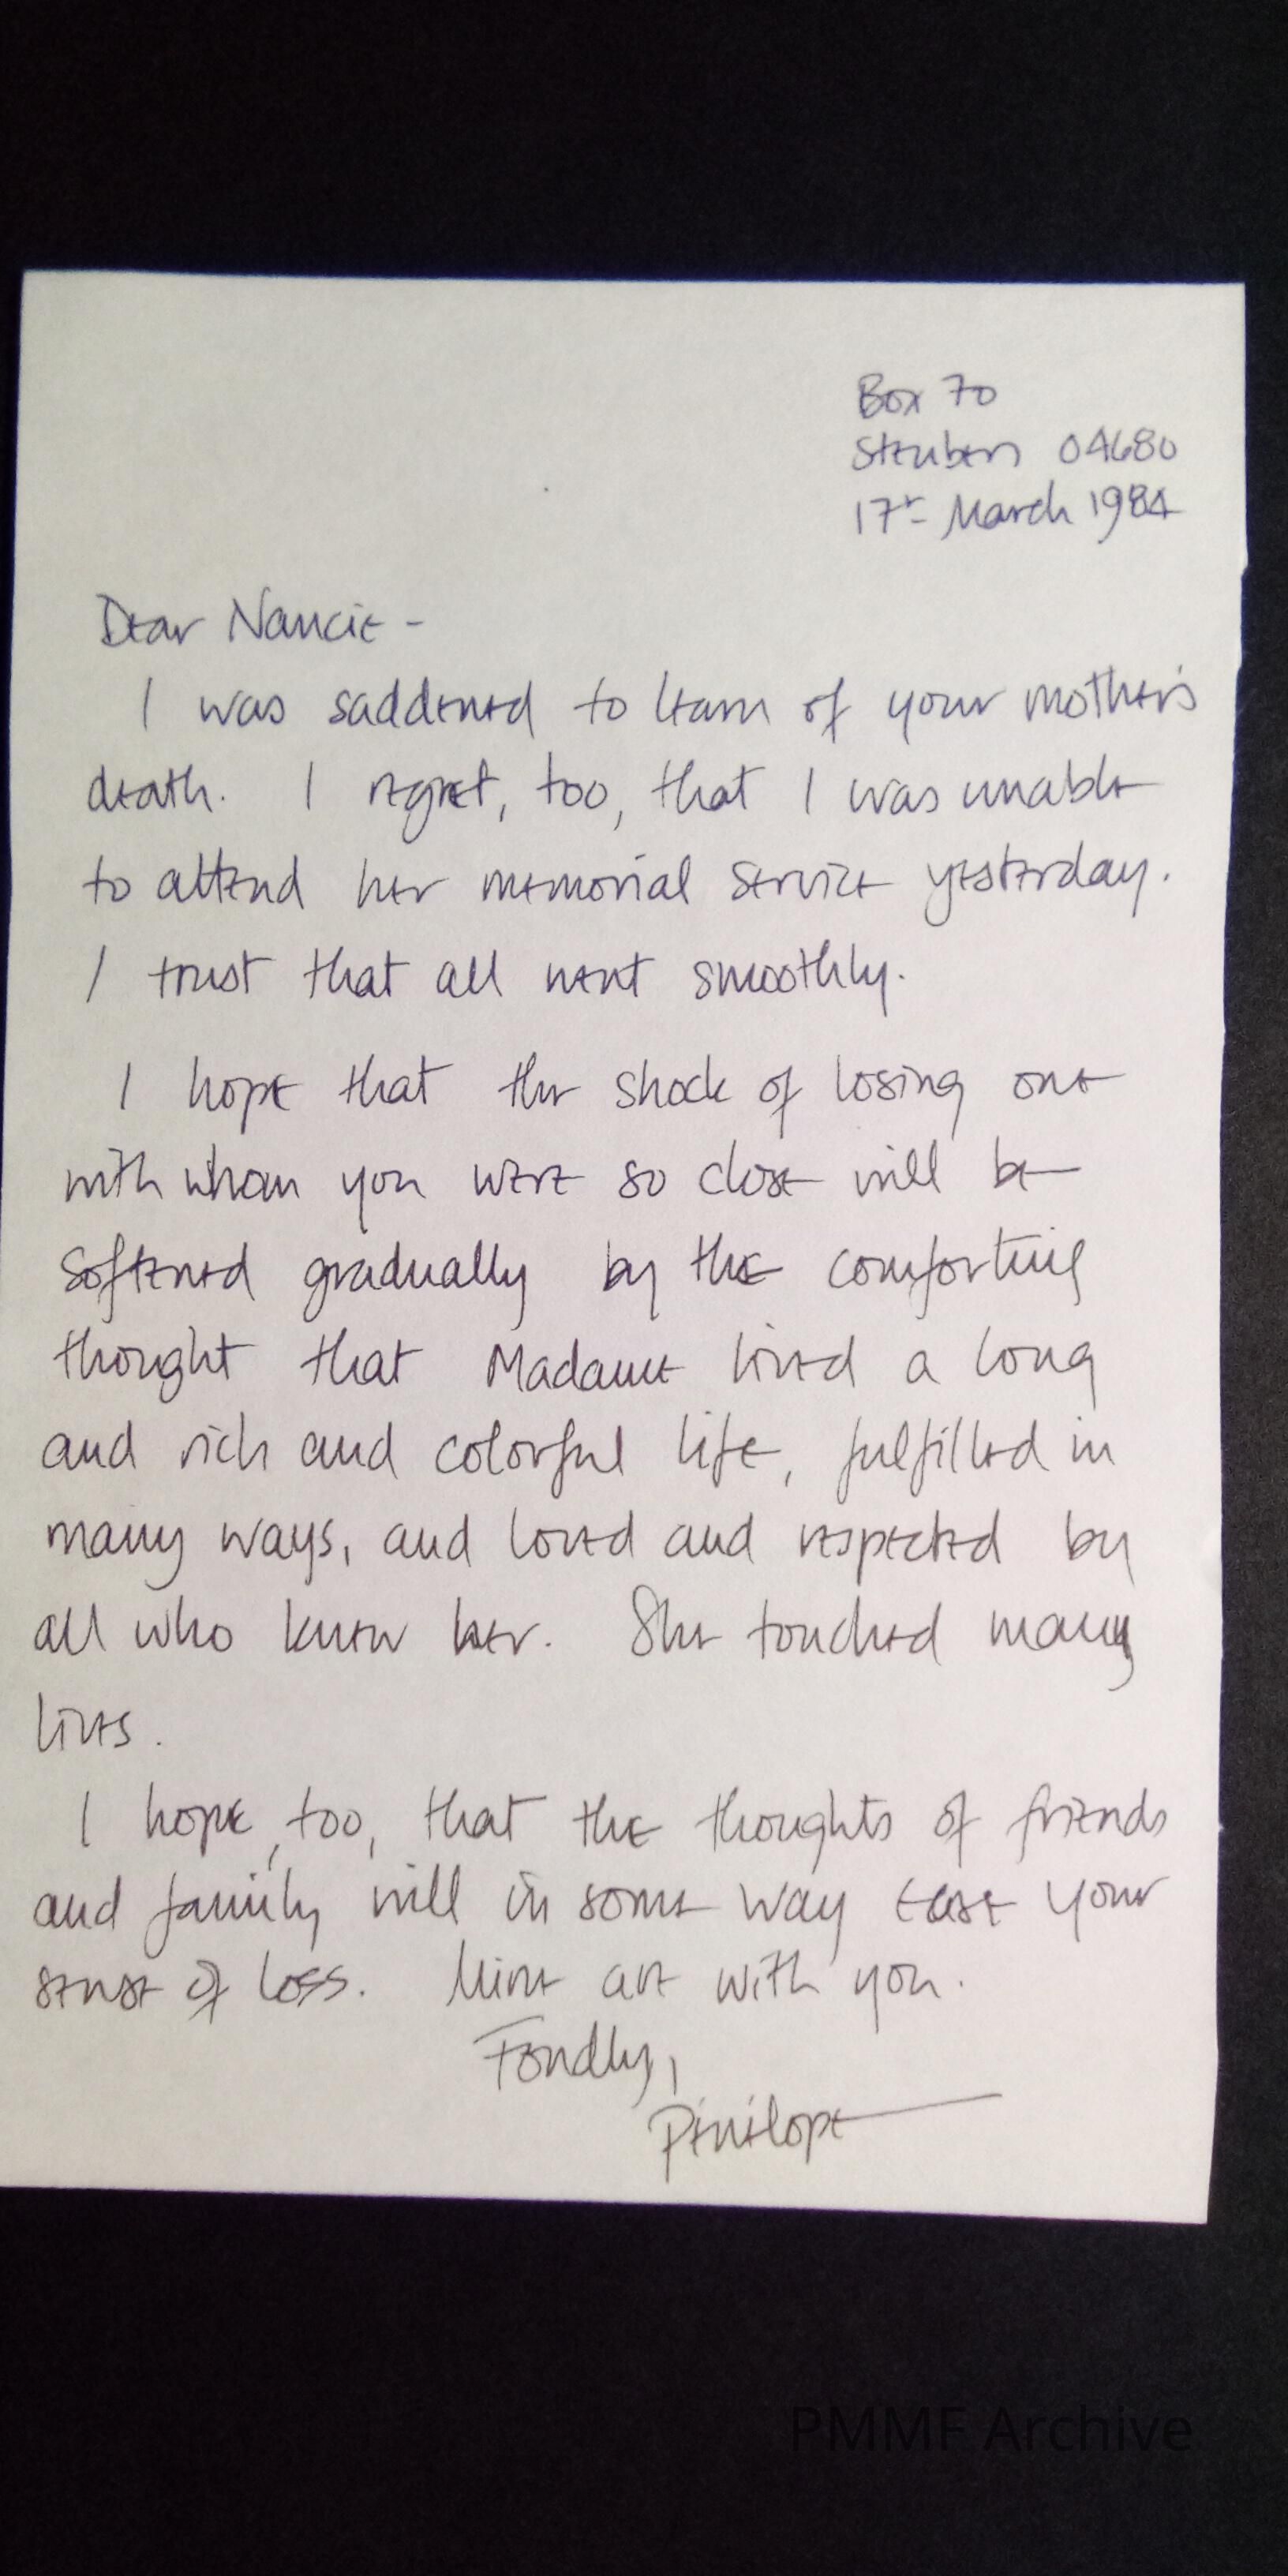 Box 70
Steuben 04680
17th March 1984
Dear Nancie -
I was saddened to learn of your mother's
death. I regret, too, that I was unable
to attend her memorial service yesterday.
I trust that all went smoothly.
I hope that the shock of losing one
with whom you were so close will be
softened gradually by the comforting
thought that Madame lived a long
and rich and colorful life, fulfilled in
many ways, and loved and respected by
all who knew her. She touched many
lives.
I hope, too, that the thoughts of friends
and family will in some way ease your
sense of loss. Mine are with you.
Fondly,
Penelope
PMMF Archive